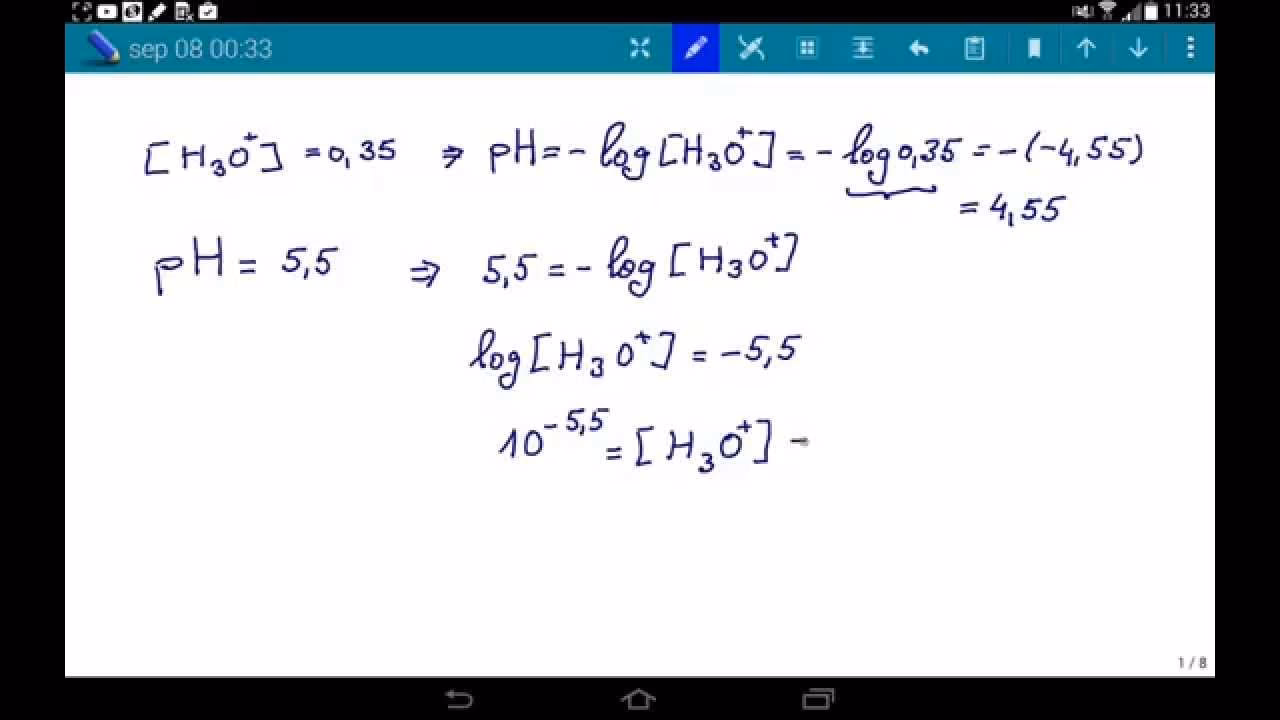 11:33
sep 08 00:33
[H₃O⁺] = 0,35 ⇒ pH = - log [H₃O⁺] = - log 0,35 = - (-4,55)
= 4,55
pH = 5,5 ⇒ 5,5 = - log [H₃O⁺]
log [H₃O⁺] = -5,5
10⁻⁵,⁵ = [H₃O⁺] -
1 / 8